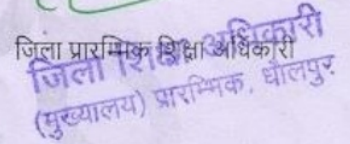 जिला प्रारम्भिक शिक्षा अधिकारी
जिला शिक्षा अधिकारी
(मुख्यालय) प्रारम्भिक, धौलपुर